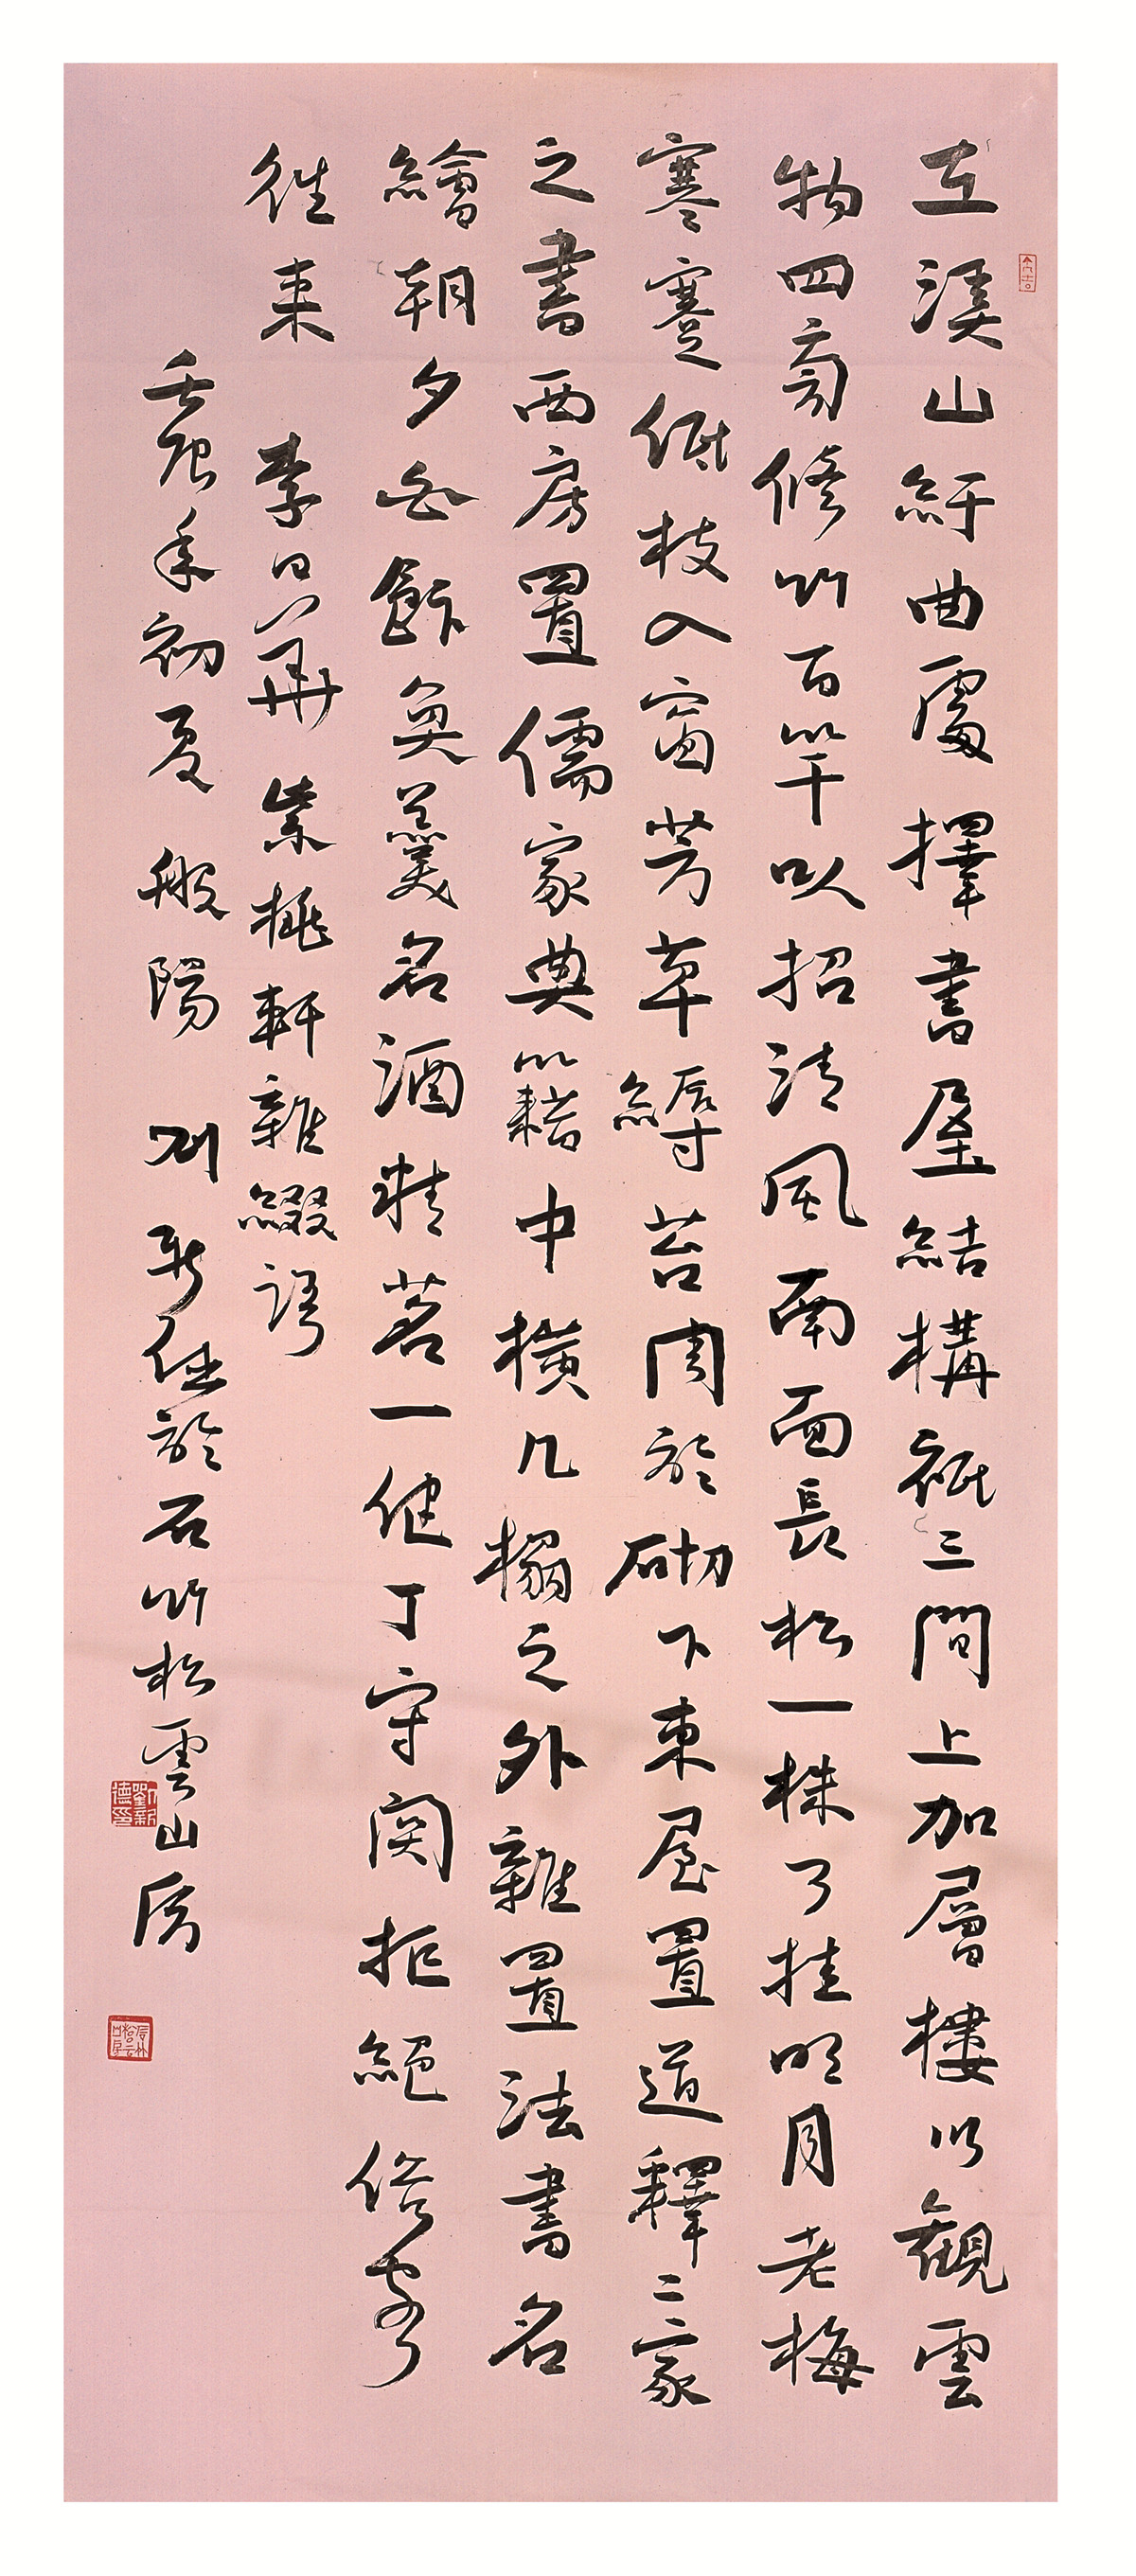 在溪山紆曲處擇書屋結構祗三間上加層樓以觀雲
物四旁修竹百竿以招清風南面長松一株可挂明月老梅
寒蹇低枝入窗芳草縟苔周於砌下東屋置道釋二家
之書西房置儒家典籍中橫几榻之外雜置法書名
繪朝夕白飯魚羹名酒精茗一健丁守關拒絕俗客
往來
李日華紫桃軒雜綴語
壬辰年初夏般陽劉新德於石竹松雲山房
劉新德印